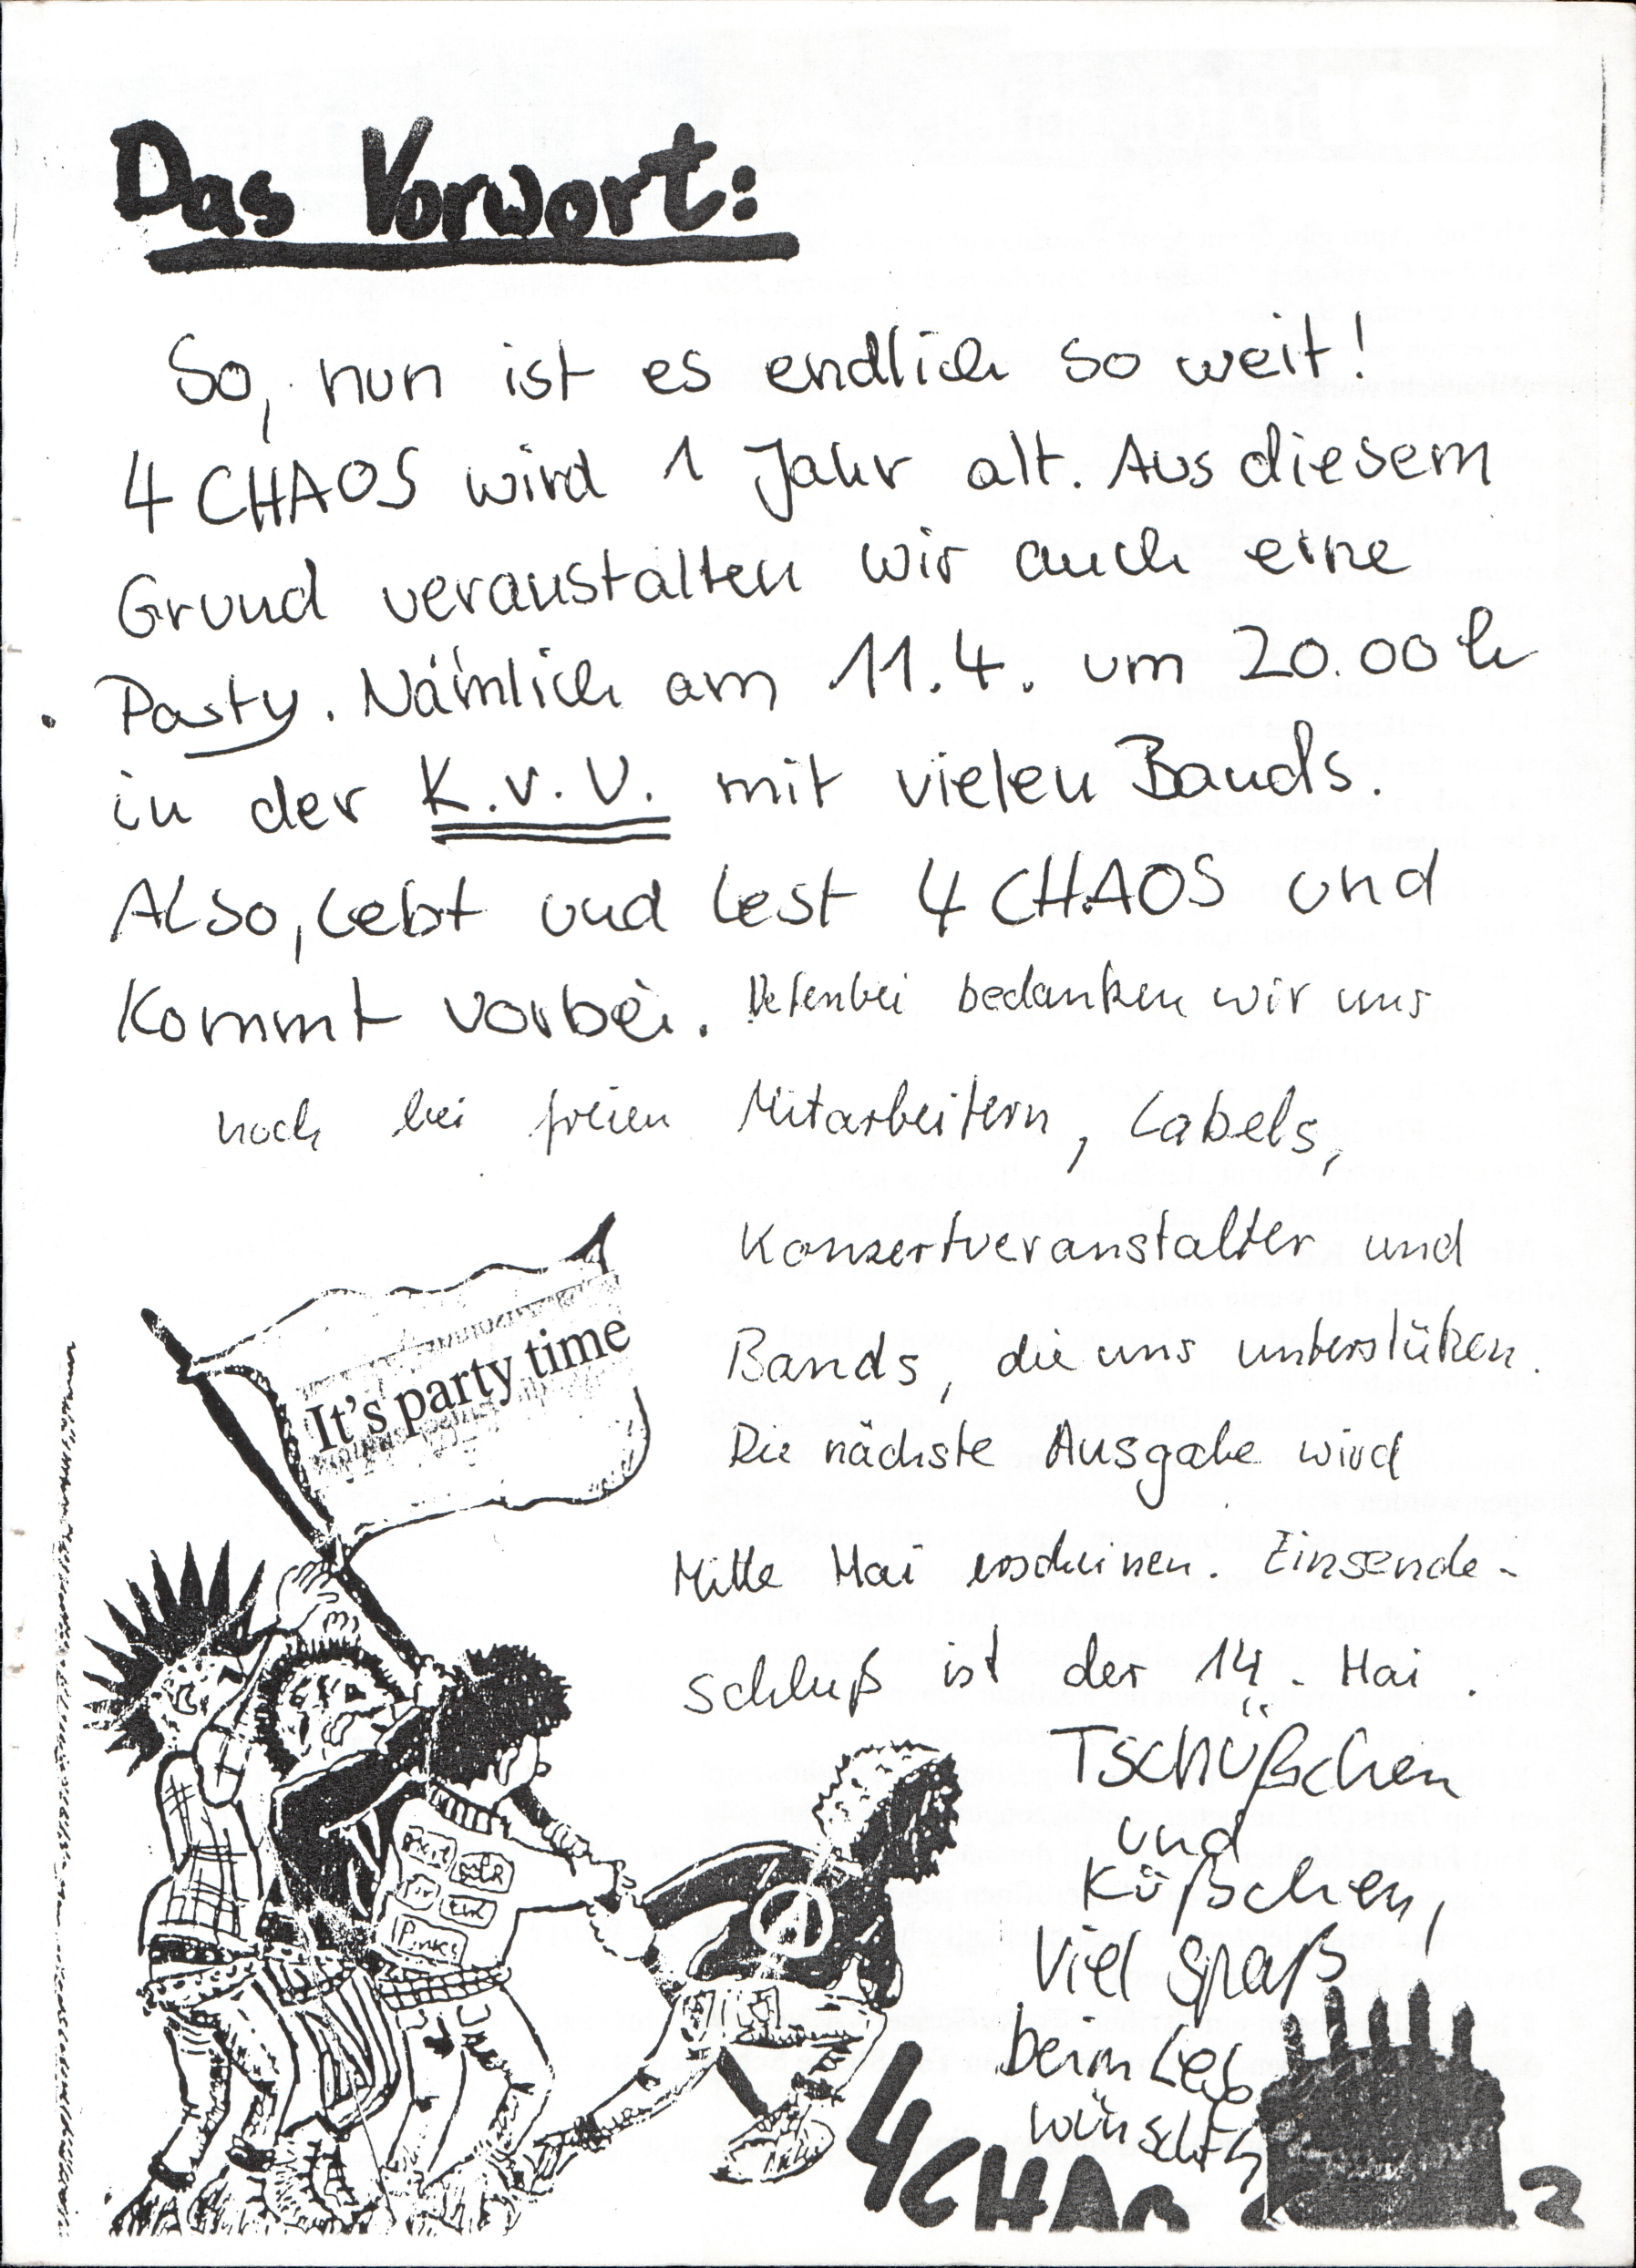 Das Vorwort:
So, nun ist es endlich so weit!
4 CHAOS wird 1 Jahr alt. Aus diesem
Grund veranstalten wir auch eine
Party. Nämlich am 11.4. um 20.00 h
in der K.v.U. mit vielen Bands.
Also, lebt und lest 4 CHAOS und
Kommt vorbei. Nebenbei bedanken wir uns
noch bei freien Mitarbeitern, Labels,
Konzertveranstalter und
Bands, die uns unterstützen.
Die nächste Ausgabe wird
Mitte Mai erscheinen. Einsende-
schluß ist der 14. Mai.
Tschüßchen
und
Küßchen,
viel spaß
beim Les
wünscht
4 CHAO
2
It's party time
Punks